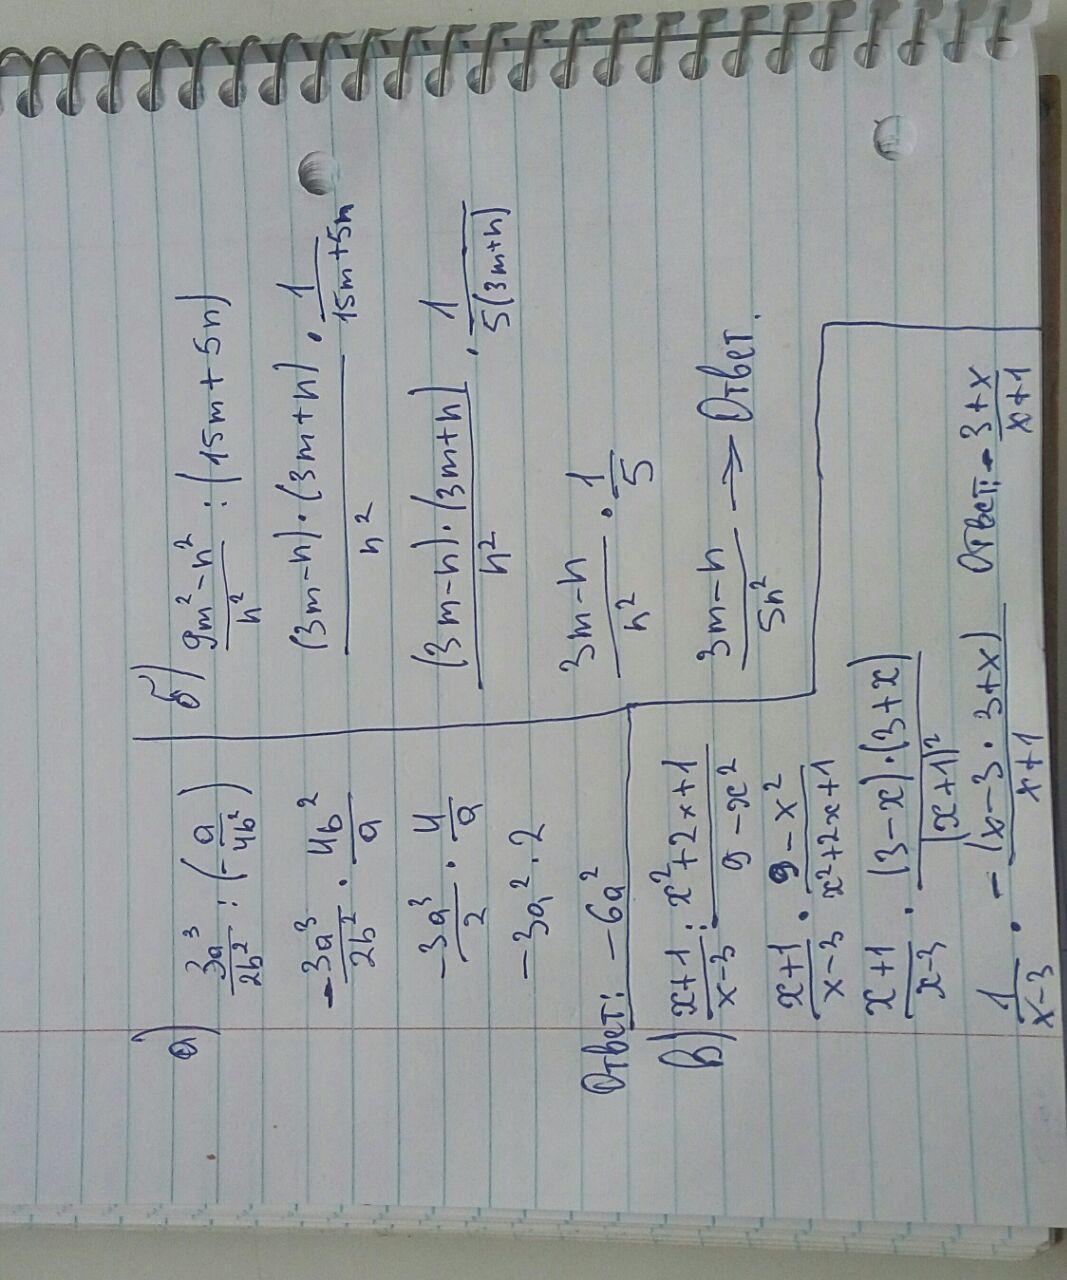 а) 3a³/2b² : (-a/4b²)
-3a³/2b² · 4b²/a
-3a³/2 · 4/a
-3a² · 2
Ответ: -6a²
б) 9m²-n²/n² : (15m+5n)
(3m-n)·(3m+n)/n² · 1/15m+5n
(3m-n)·(3m+n)/n² · 1/5(3m+n)
3m-n/n² · 1/5
3m-n/5n² → Ответ.
в) x+1/x-3 : x²+2x+1/9-x²
x+1/x-3 · 9-x²/x²+2x+1
x+1/x-3 · (3-x)·(3+x)/(x+1)²
1/x-3 · -(x-3·3+x)/x+1 Ответ: -3+x/x+1